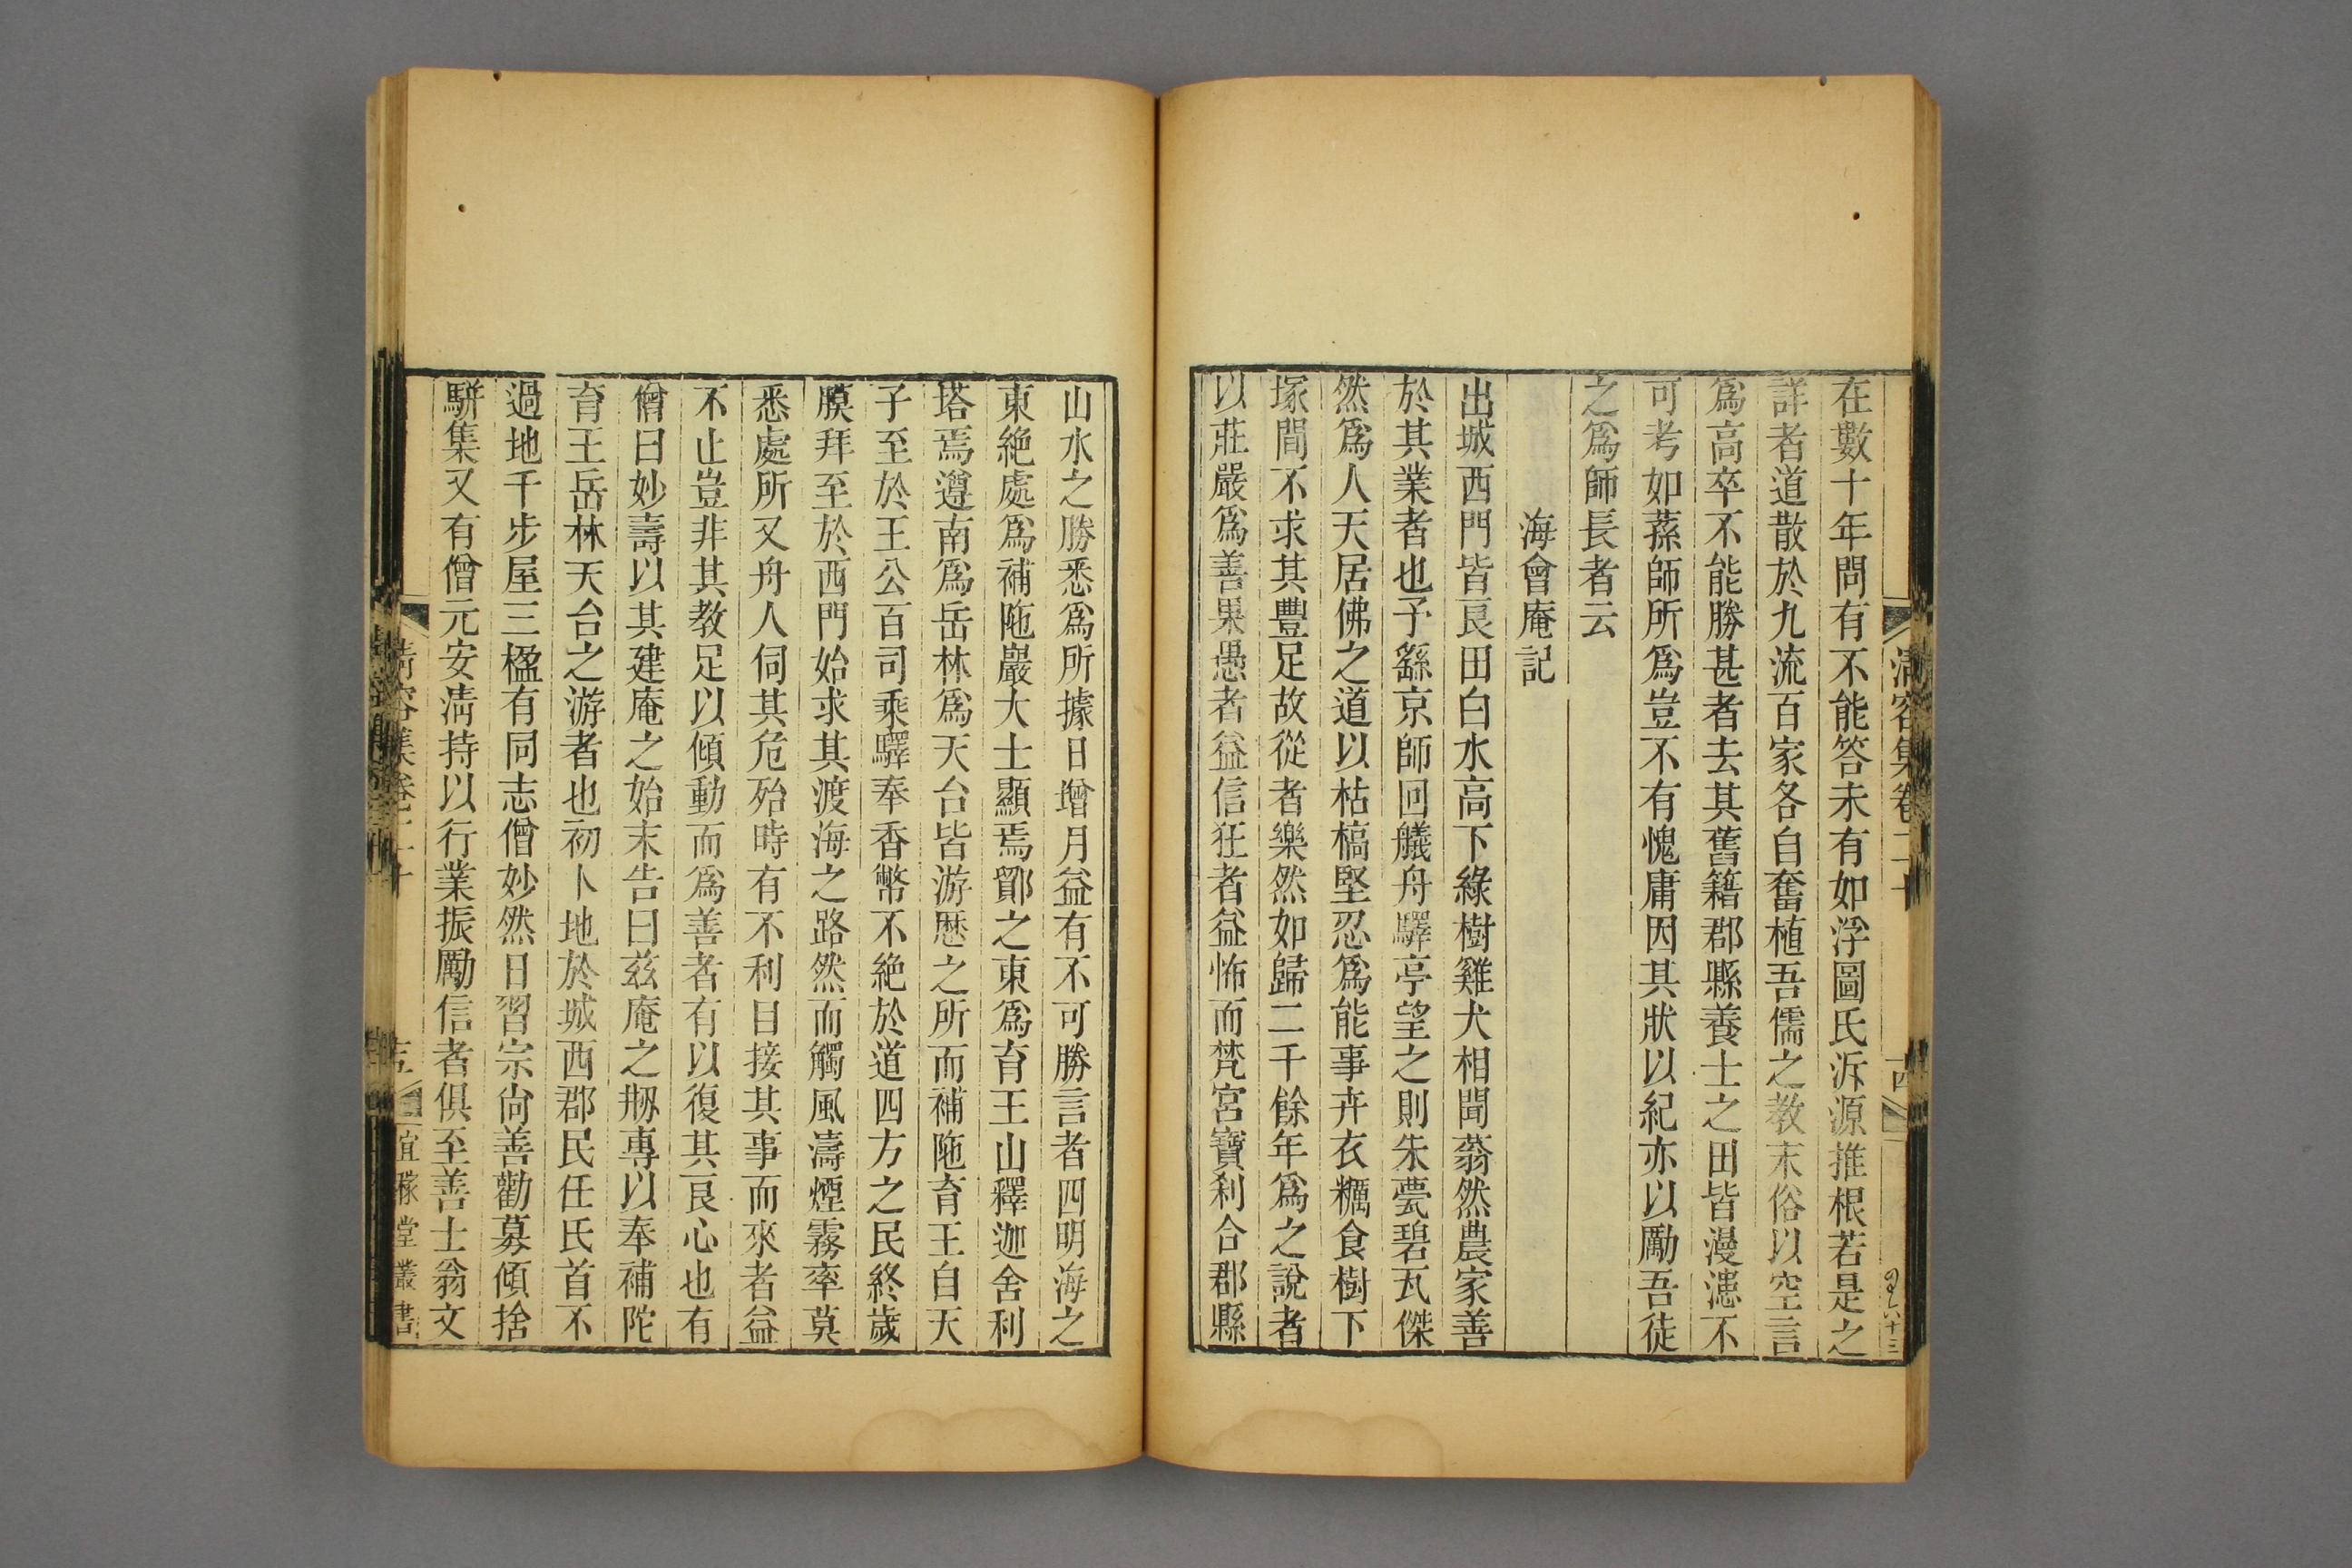 清容集卷二十
十四
在數十年問有不能答未有如浮圖氏泝源推根若是之
詳者道散於九流百家各自奮植吾儒之教末俗以空言
爲高卒不能勝甚者去其舊籍郡縣養士之田皆漫漶不
可考如蓀師所爲豈不有愧庸因其狀以紀亦以勵吾徒
之爲師長者云
海會庵記
出城西門皆良田白水高下綠樹雞犬相聞蓊然農家善
於其業者也予繇京師回艤舟驛亭望之則朱甍碧瓦傑
然爲人天居佛之道以枯槁堅忍爲能事卉衣糲食樹下
塚間不求其豐足故從者樂然如歸二千餘年爲之說者
以莊嚴爲善果愚者益信狂者益怖而梵宮寶刹合郡縣
山水之勝悉爲所據日增月益有不可勝言者四明海之
東絶處爲補陁巖大士顯焉鄮之東爲育王山釋迦舍利
塔焉遵南爲岳林爲天台皆游歷之所而補陁育王自天
子至於王公百司乘驛奉香幣不絶於道四方之民終歲
膜拜至於西門始求其渡海之路然而觸風濤煙霧卒莫
悉處所又舟人伺其危殆時有不利目接其事而來者益
不止豈非其教足以傾動而爲善者有以復其良心也有
僧曰妙壽以其建庵之始末告曰玆庵之剏專以奉補陀
育王岳林天台之游者也初卜地於城西郡民任氏首不
過地千步屋三楹有同志僧妙然日習宗尙善勸募傾捨
駢集又有僧元安淸持以行業振勵信者俱至善士翁文
清容集卷二十
十五
宜稼堂叢書